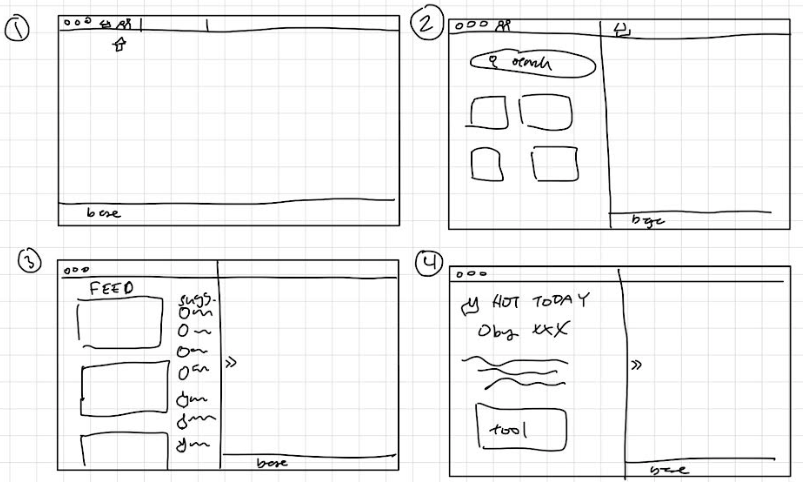 1
base
2
search
base
3
FEED
sugg.
base
4
HOT TODAY
by XXX
tool
base